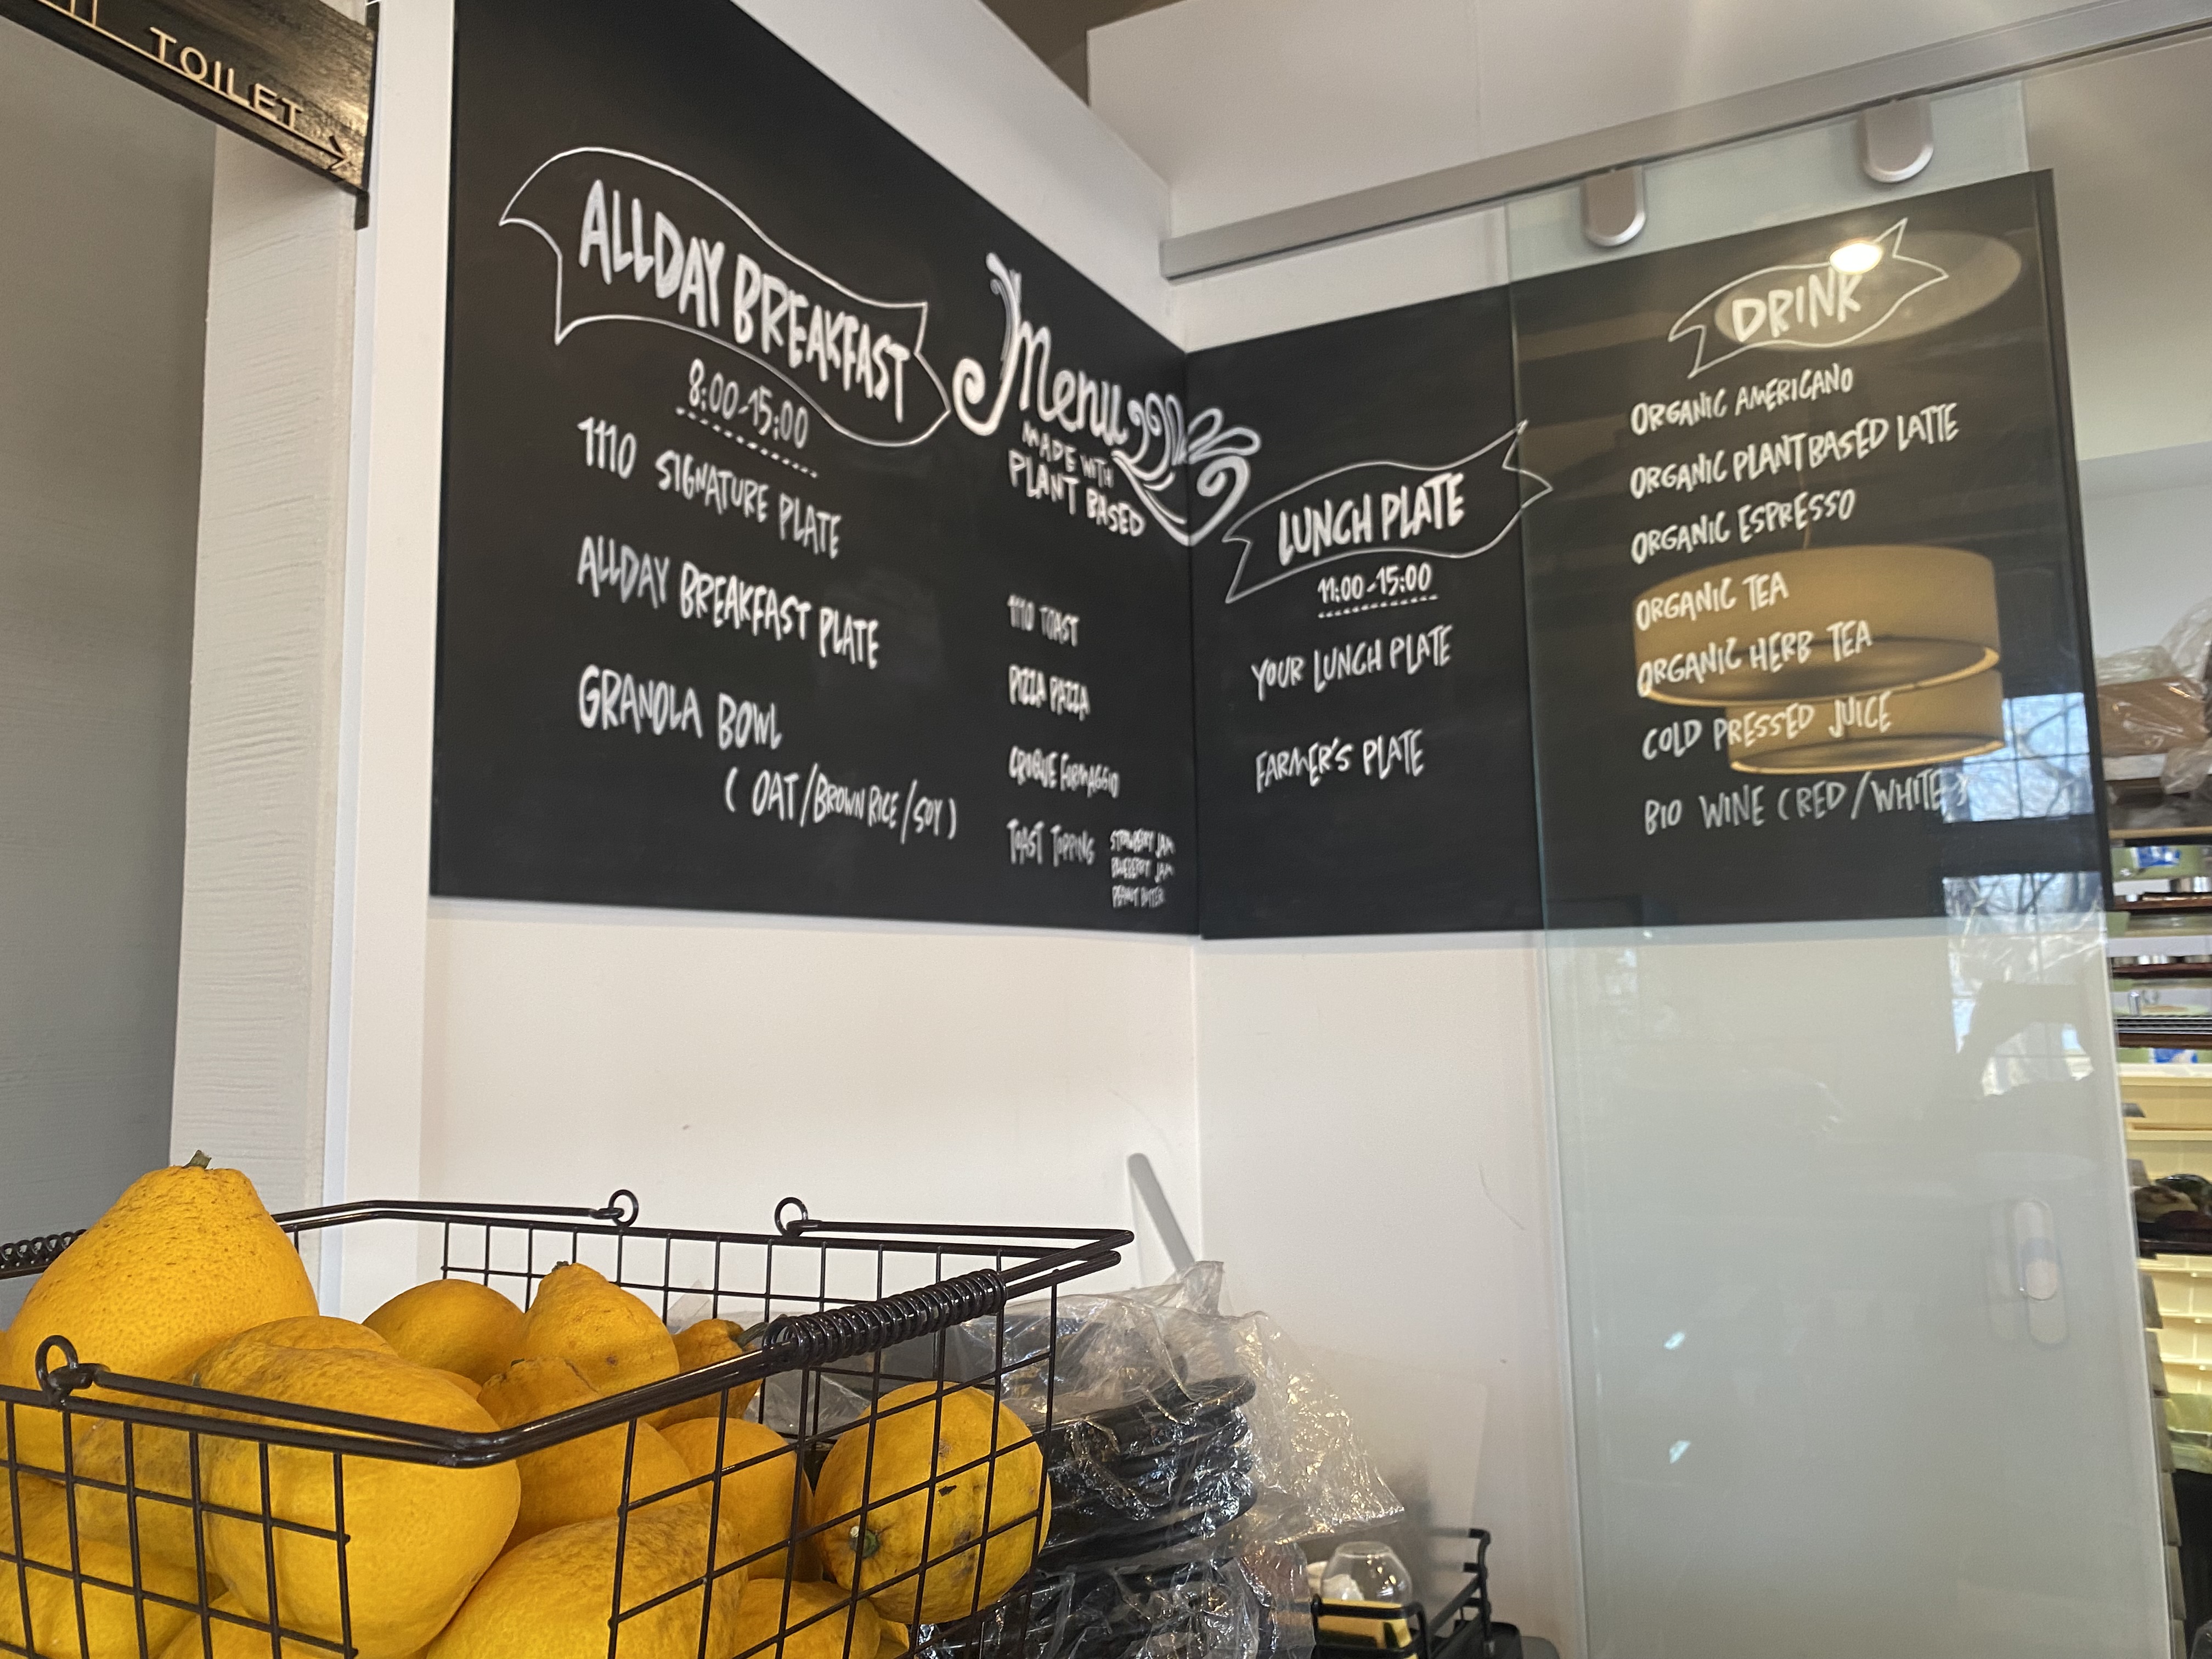 TOILET
ALLDAY BREAKFAST
8:00-15:00
1110 SIGNATURE PLATE
ALLDAY BREAKFAST PLATE
GRANOLA BOWL
( OAT/BROWN RICE/SOY )
Menu
MADE WITH
PLANT BASED
1110 TOAST
PIZZA PAZZA
CROQUE FORMAGGIO
TOAST TOPPING
JAM
JAM
LUNCH PLATE
11:00-15:00
YOUR LUNCH PLATE
FARMER'S PLATE
DRINK
ORGANIC AMERICANO
ORGANIC PLANT BASED LATTE
ORGANIC ESPRESSO
ORGANIC TEA
ORGANIC HERB TEA
COLD PRESSED JUICE
BIO WINE (RED/WHITE)